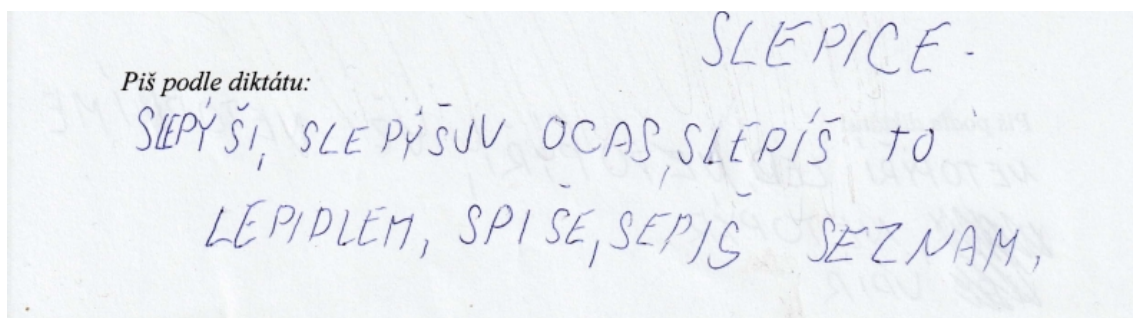 SLEPICE.
Piš podle diktátu:
SLEPÝŠI, SLEPÝŠUV OCAS, SLEPÍŠ TO
LEPIDLEM, SPIŠE, SEPIŠ SEZNAM.